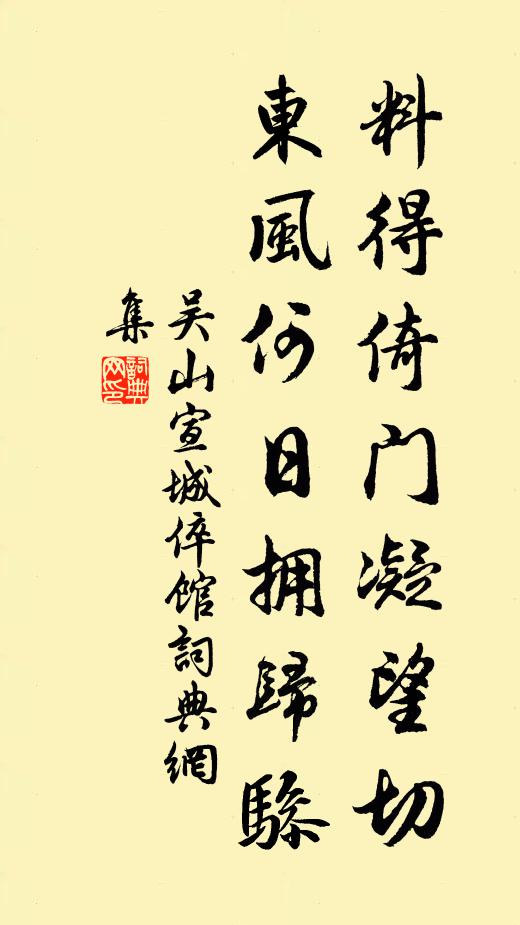 料得倚門凝望切
東風何日拥歸驂
吴山宣城倅館詞典網
集
詞典
网印